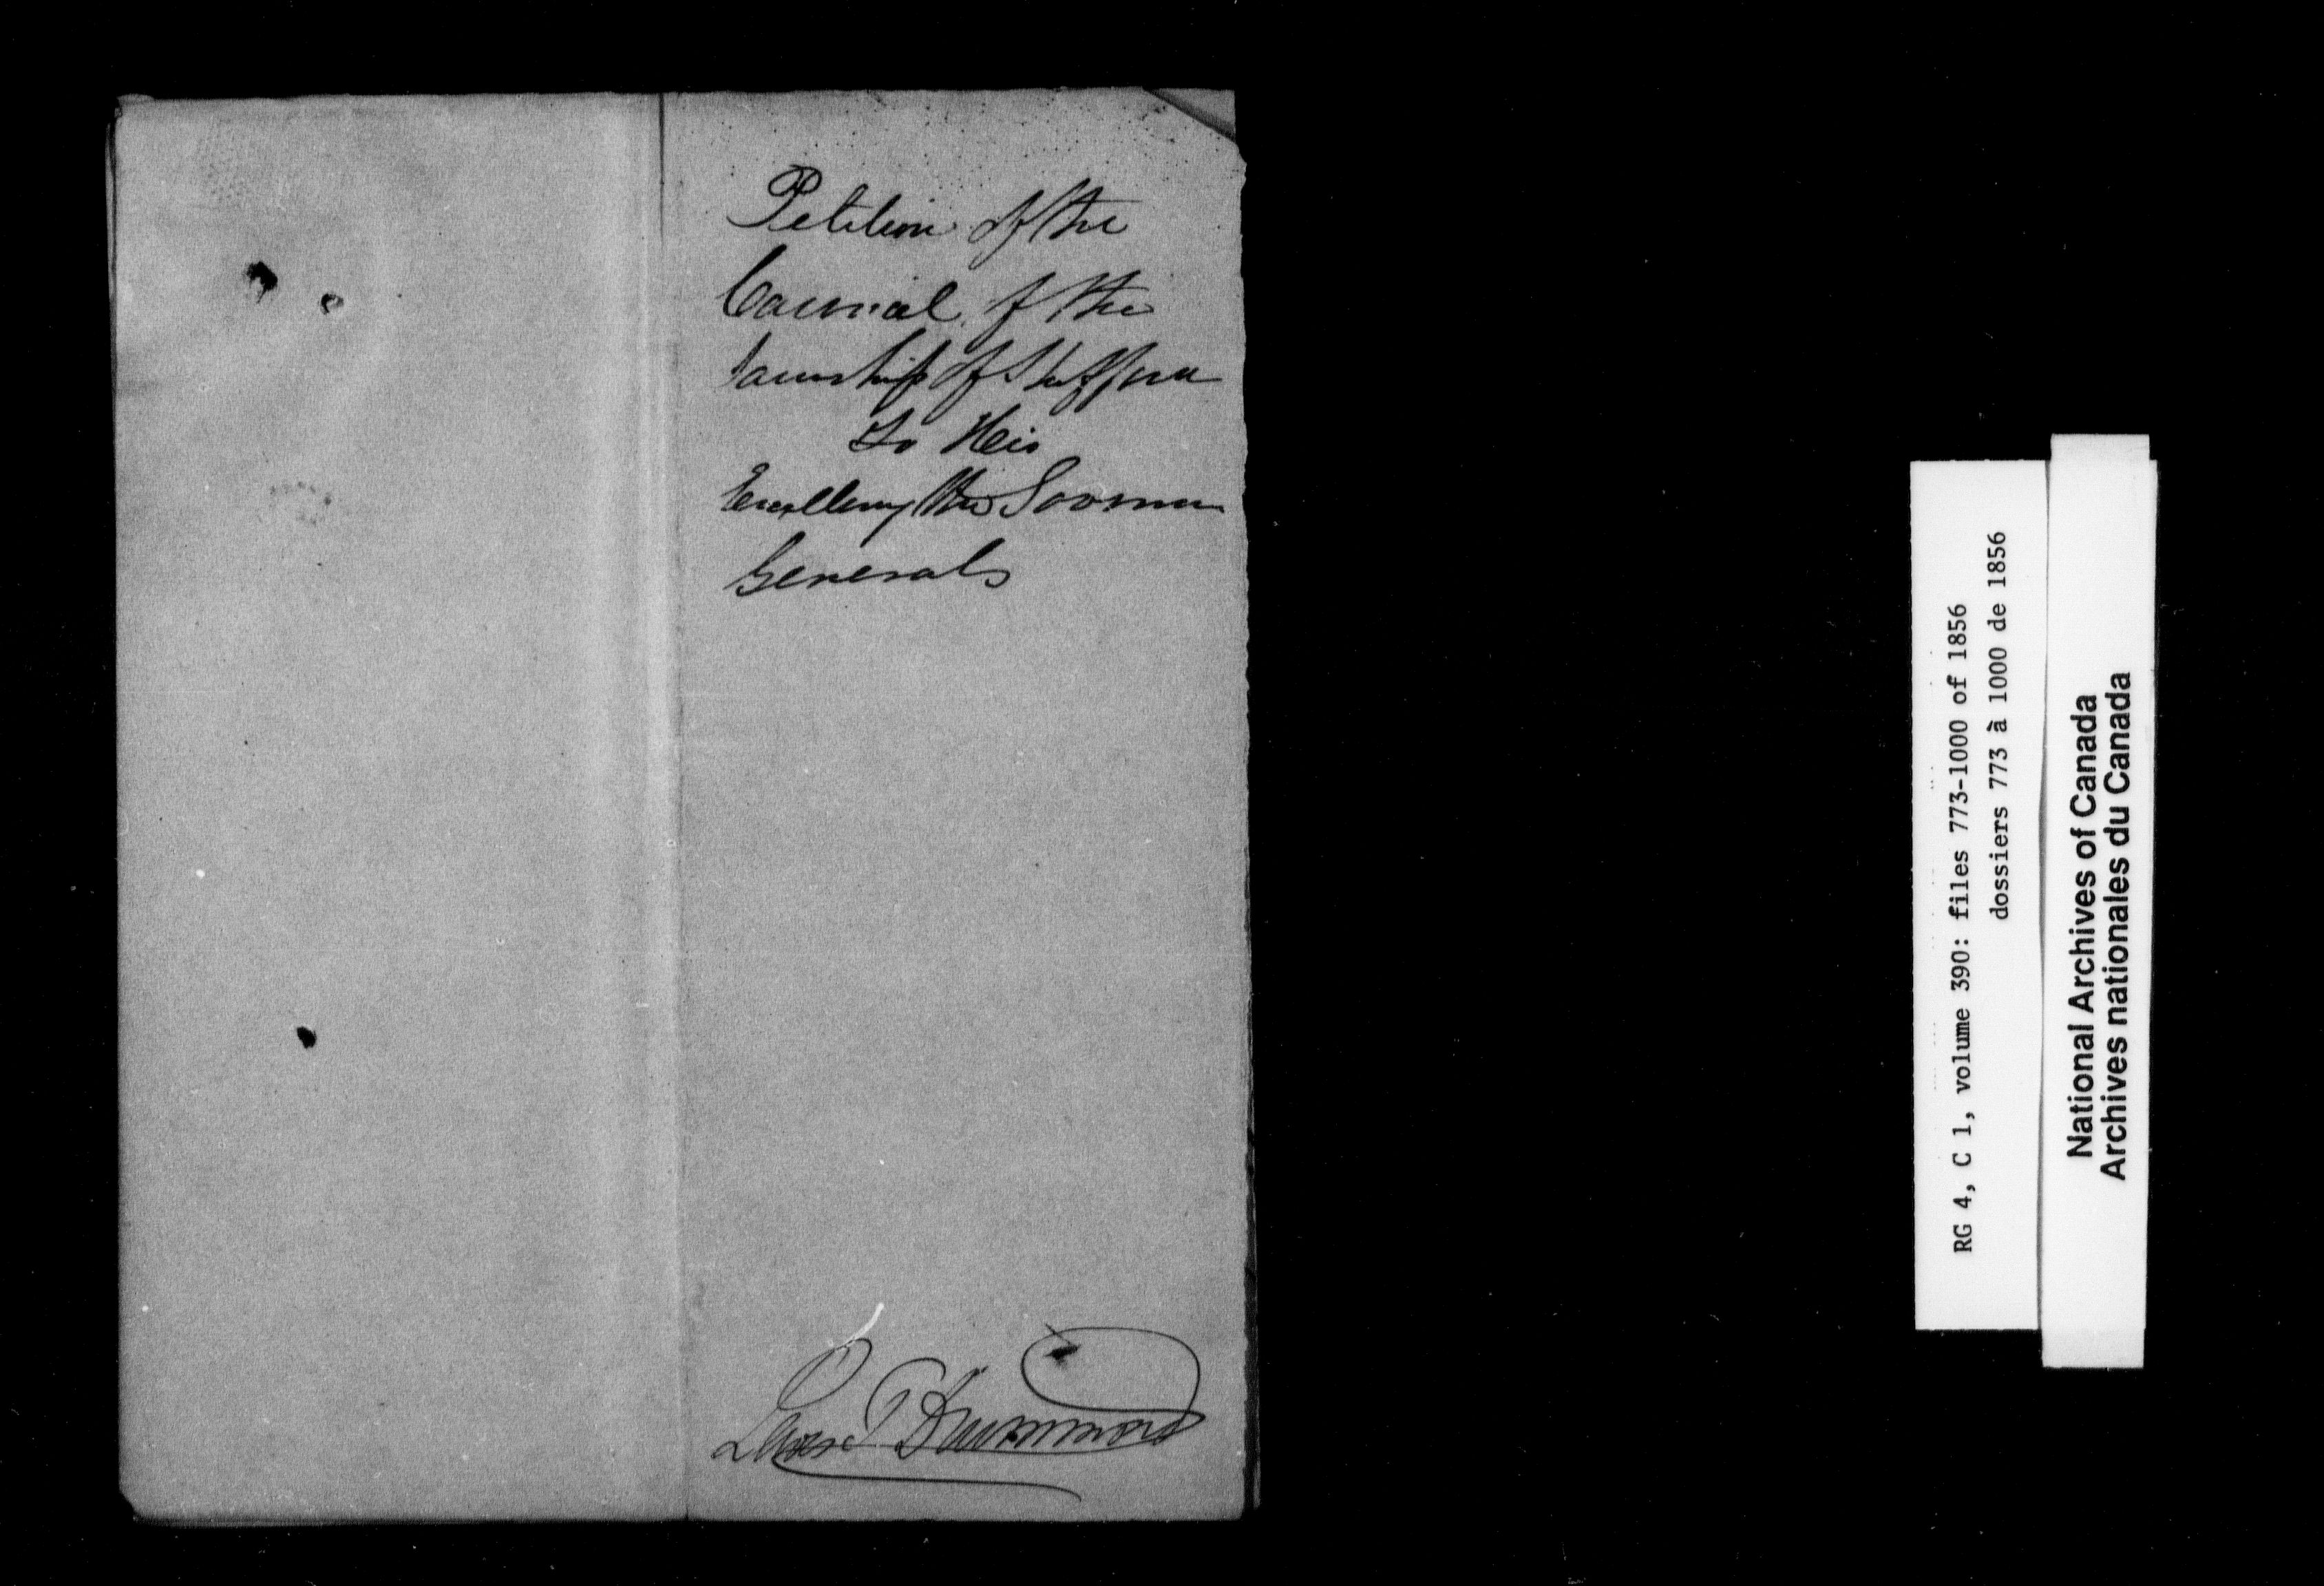 Petition of the
Council of the
Township of Shefford
to His
Excellency the Governor
General
Lewis T Drummond
RG 4, C 1, volume 390: files 773-1000 of 1856
dossiers 773 à 1000 de 1856
National Archives of Canada
Archives nationales du Canada